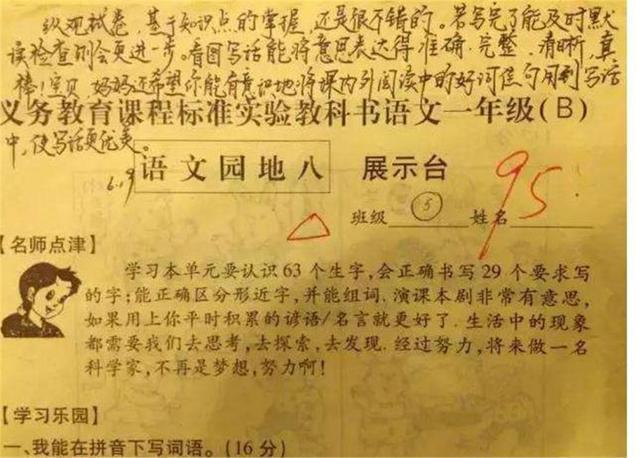 纵观试卷,基于知识点的掌握,还是很不错的。若写完了能及时默
读检查则会更进一步。看图写话能将意思表达得准确、完整、清晰,真
棒!宝贝,妈妈还希望你能有意识地将课内外阅读中的好词佳句用到写话
义务教育课程标准实验教科书语文一年级(B)
中,使写话更优美。
6.19
语文园地八 展示台
95
班级 5 姓名
【名师点津】
学习本单元要认识63个生字,会正确书写29个要求写
的字;能正确区分形近字,并能组词.演课本剧非常有意思,
如果用上你平时积累的谚语/名言就更好了.生活中的现象
都需要我们去思考,去探索,去发现.经过努力,将来做一名
科学家,不再是梦想,努力啊!
【学习乐园】
一、我能在拼音下写词语。(16分)